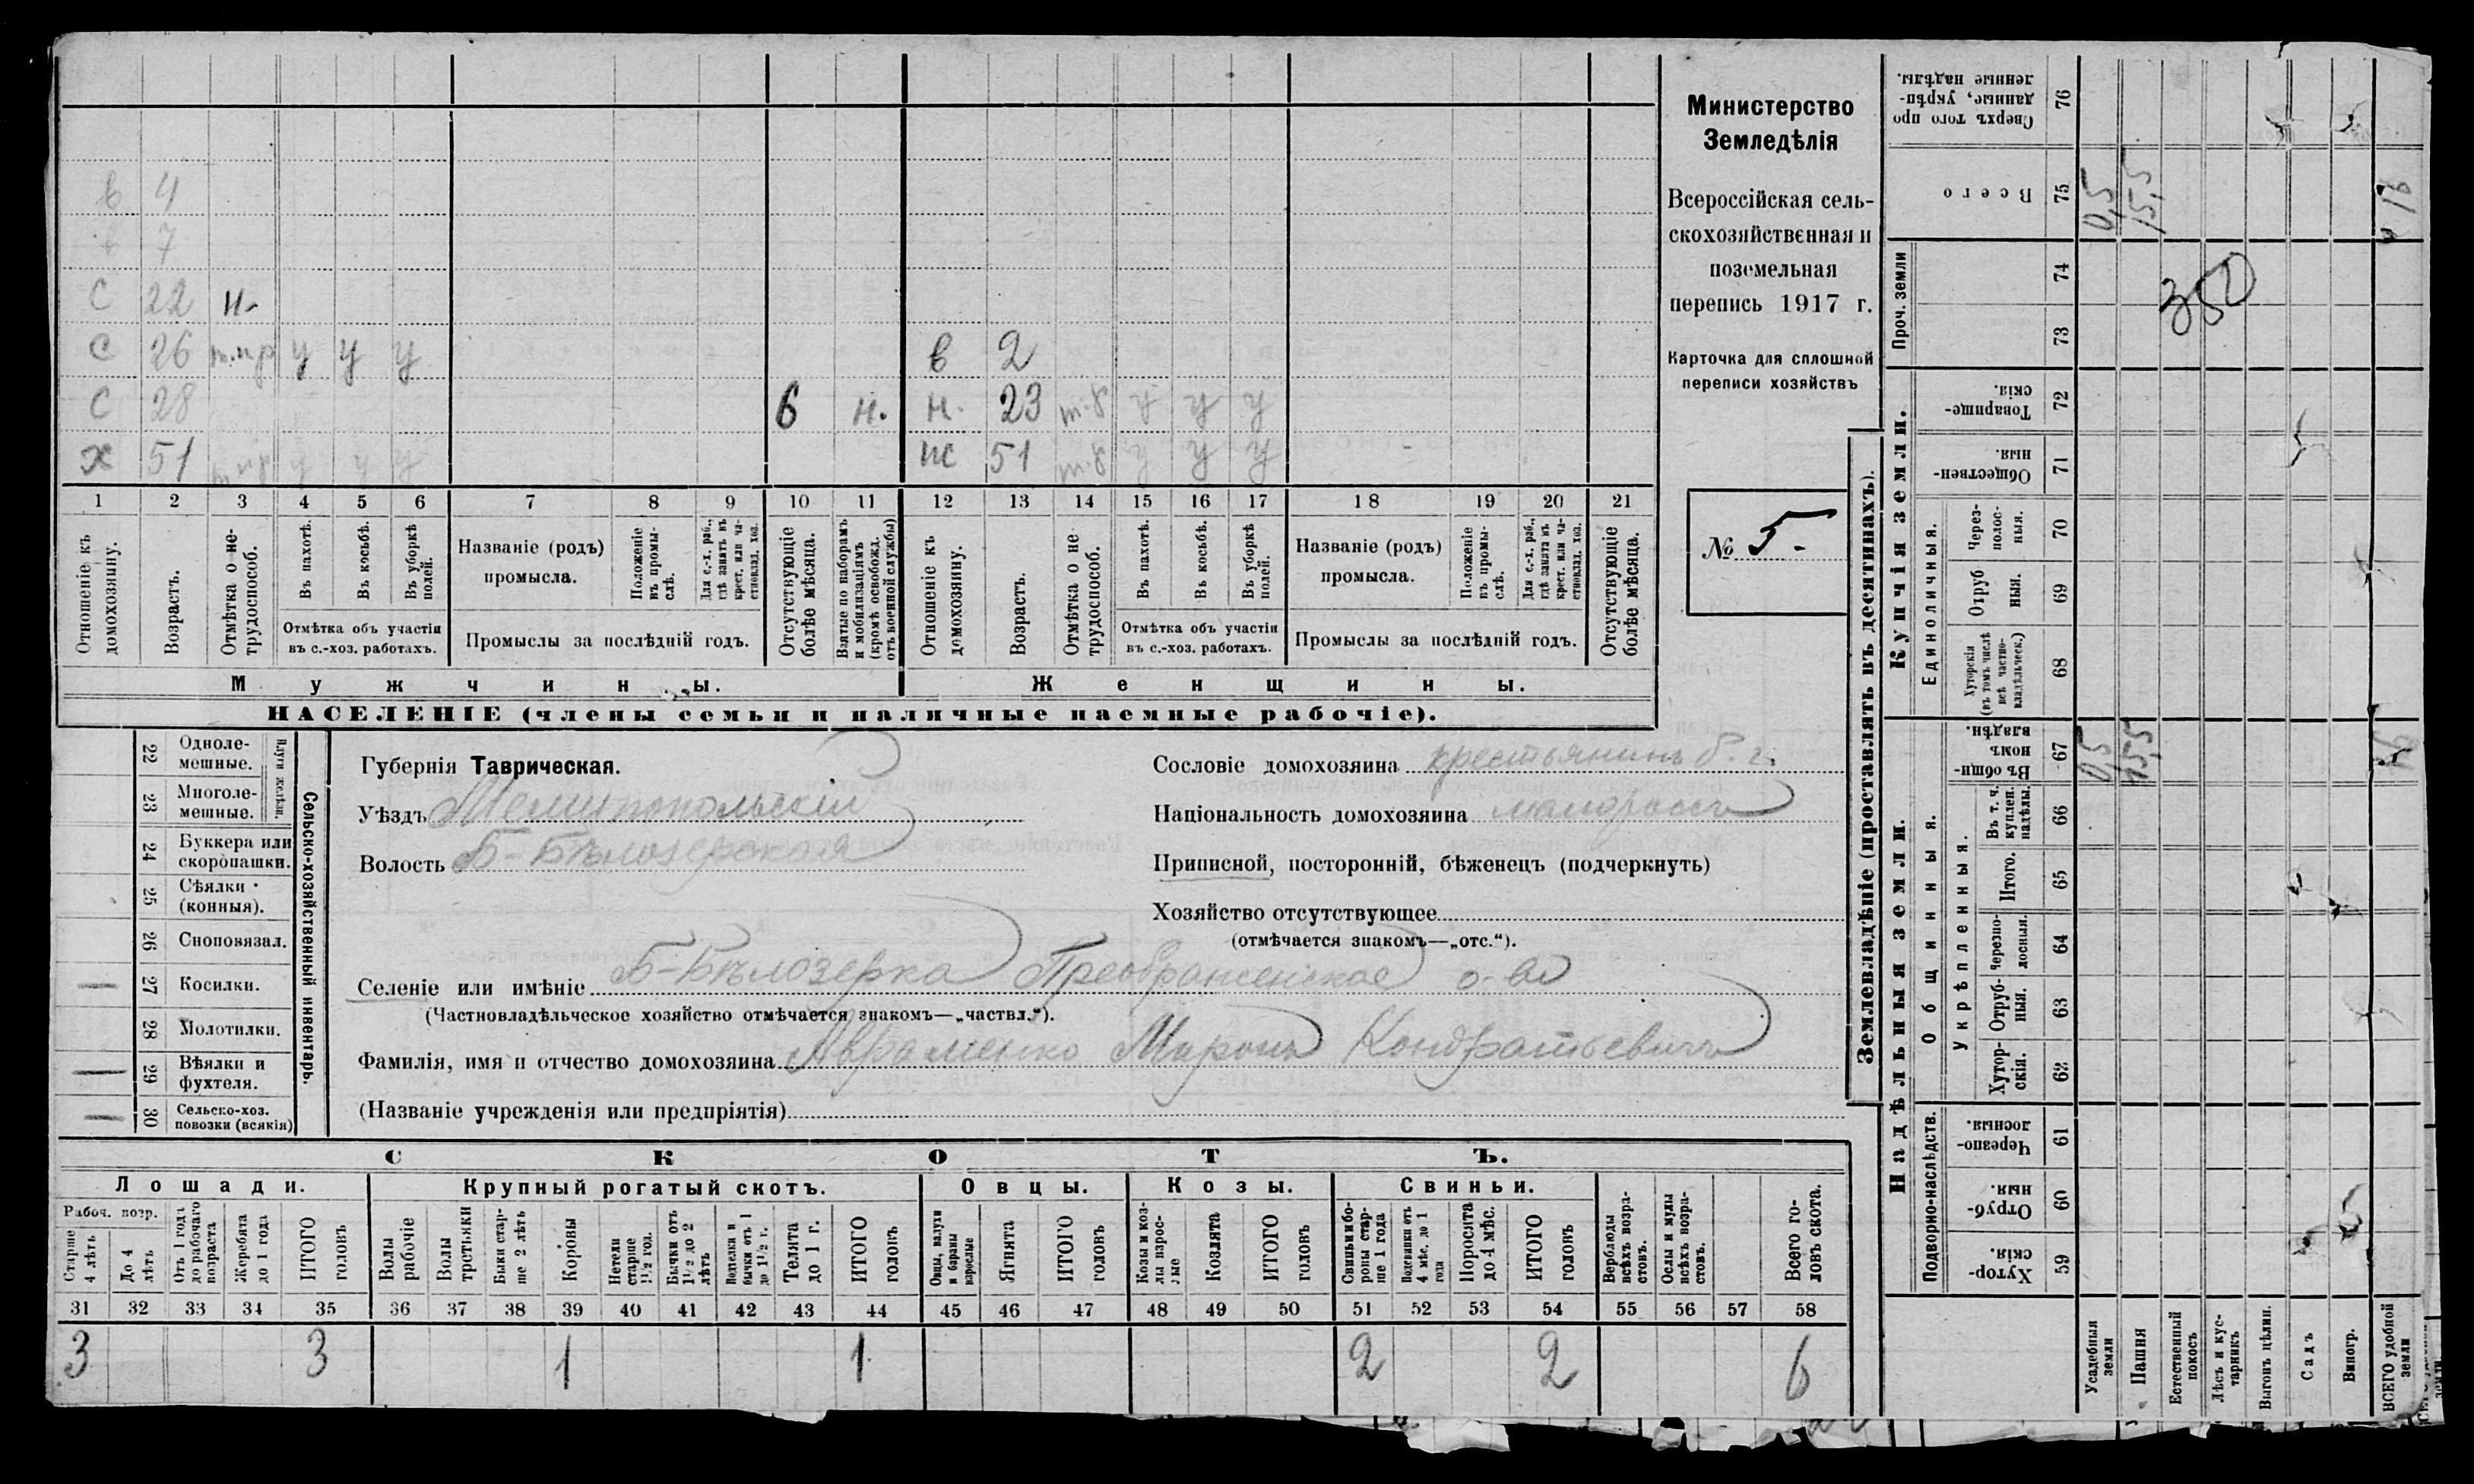 в 4
в 7
С 22 н.
С 26 т.пр у у у в 2
С 28 6 н. н. 23 у у у
х 51 у у у ж 51 у у у
1 2 3 4 5 6 7 8 9 10 11 12 13 14 15 16 17 18 19 20 21
Отношеніе къ домохозяину.
Возрастъ.
Отмѣтка о не-трудоспособ.
Въ пахотѣ.
Въ косьбѣ.
Въ уборкѣ полей.
Отмѣтка объ участіи
въ с.-хоз. работахъ.
Названіе (родъ)
промысла.
Положеніе въ промы-слѣ.
Для с.-х. раб., гдѣ занятъ въ крест. или ча-стновлад. хоз.
Промыслы за послѣдній годъ.
Отсутствующіе болѣе мѣсяца.
Взятые по наборамъ и мобилизаціямъ (кромѣ освобожд. отъ военной службы)
Отношеніе къ домохозяину.
Возрастъ.
Отмѣтка о не трудоспособ.
Въ пахотѣ.
Въ косьбѣ.
Въ уборкѣ полей.
Отмѣтка объ участіи
въ с.-хоз. работахъ.
Названіе (родъ)
промысла.
Положеніе въ промы-слѣ.
Для с.-х. раб., гдѣ занята въ крест. или ча-стновлад. хоз.
Промыслы за послѣдній годъ.
Отсутствующіе болѣе мѣсяца.
Мужчины. Женщины.
НАСЕЛЕНІЕ (члены семьи и наличные наемные рабочіе).
Министерство
Земледѣлія
Всероссійская сель-
скохозяйственная и
поземельная
перепись 1917 г.
Карточка для сплошной
переписи хозяйствъ
№ 5.
22 Одноле-мешные.
23 Многоле-мешные.
Плуги желѣзн.
24 Буккера или скоропашки.
25 Сѣялки (конныя).
26 Сноповязал.
— 27 Косилки.
28 Молотилки.
— 29 Вѣялки и фухтеля.
— 30 Сельско-хоз. повозки (всякія)
Сельско-хозяйственный инвентарь.
Губернія Таврическая.
Уѣздъ Мелитопольскій
Волость Б-Бѣлозерская
Сословіе домохозяина крестьянинъ б. г.
Національность домохозяина малороссъ
Приписной, посторонній, бѣженецъ (подчеркнуть)
Хозяйство отсутствующее
(отмѣчается знакомъ—„отс.“).
Селеніе или имѣніе Б-Бѣлозерка Преображенское о-во
(Частновладѣльческое хозяйство отмѣчается знакомъ—„частвл.“).
Фамилія, имя и отчество домохозяина Авраменко Миронъ Кондратьевичъ
(Названіе учрежденія или предпріятія)
СКОТЪ.
Лошади. Крупный рогатый скотъ. Овцы. Козы. Свиньи.
Рабоч. возр.
Старше 4 лѣтъ
До 4 лѣтъ
Отъ 1 года до рабочаго возраста
Жеребята до 1 года
ИТОГО головъ
Волы рабочіе
Волы третьяки
Быки стар-ше 2 лѣтъ
Коровы
Нетели старше 1½ год.
Бычки отъ 1½ до 2 лѣтъ
Телки и бычки отъ 1 до 1½ г.
Телята до 1 г.
ИТОГО головъ
Овцы, валухи и бараны взрослые
Ягнята
ИТОГО головъ
Козы и коз-лы взрос-лые
Козлята
ИТОГО головъ
Свиньи и бо-ровы стар-ше 1 года
Подсвинки отъ 4 мѣс. до 1 года
Поросята до 4 мѣс.
ИТОГО головъ
Верблюды всѣхъ возра-стовъ.
Ослы и мулы всѣхъ возра-стовъ.
Всего го-ловъ скота.
31 32 33 34 35 36 37 38 39 40 41 42 43 44 45 46 47 48 49 50 51 52 53 54 55 56 57 58
3 3 1 1 2 2 6
Землевладѣніе (проставлять въ десятинахъ).
Сверхъ того про
данные, укрѣп-
ленные надѣлы.
76
Всего 75 0,5 15,5 16
Проч. земли 74 73
350
Купчія земли.
Товарище-скія. 72
Обществен-ныя. 71
Единоличныя.
Через-полос-ныя. 70
Отруб ныя. 69
Хуторскія (въ томъ числѣ всѣ частно-владѣльческ.) 68
Надѣльныя земли.
Общинныя.
Въ общин-номъ владѣн. 67 0,5 15,5
Укрѣпленныя.
Въ т. ч. куплен. надѣлы. 66
Итого. 65
Черезпо-лосныя. 64
Отруб-ныя. 63
Хутор-скія. 62
Подворно-наслѣдств.
Черезпо-лосныя. 61
Отруб-ныя. 60
Хутор-скія. 59
Усадебныя земли
Пашня
Естественный покосъ
Лѣсъ и кус-тарникъ
Выгонъ цѣлин.
Садъ
Виногр.
ВСЕГО удобной земли